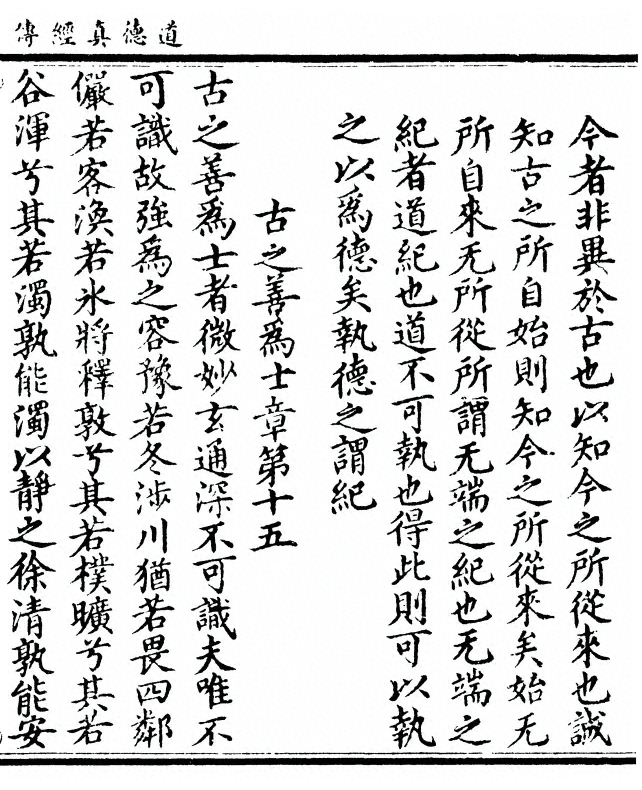 道德真經傳
今者非異於古也以知今之所從來也誠
知古之所自始則知今之所從來矣始无
所自來无所從所謂无端之紀也无端之
紀者道紀也道不可執也得此則可以執
之以爲德矣執德之謂紀
古之善爲士章第十五
古之善爲士者微妙玄通深不可識夫唯不
可識故強爲之容豫若冬涉川猶若畏四鄰
儼若客渙若氷將釋敦兮其若樸曠兮其若
谷渾兮其若濁孰能濁以靜之徐清孰能安